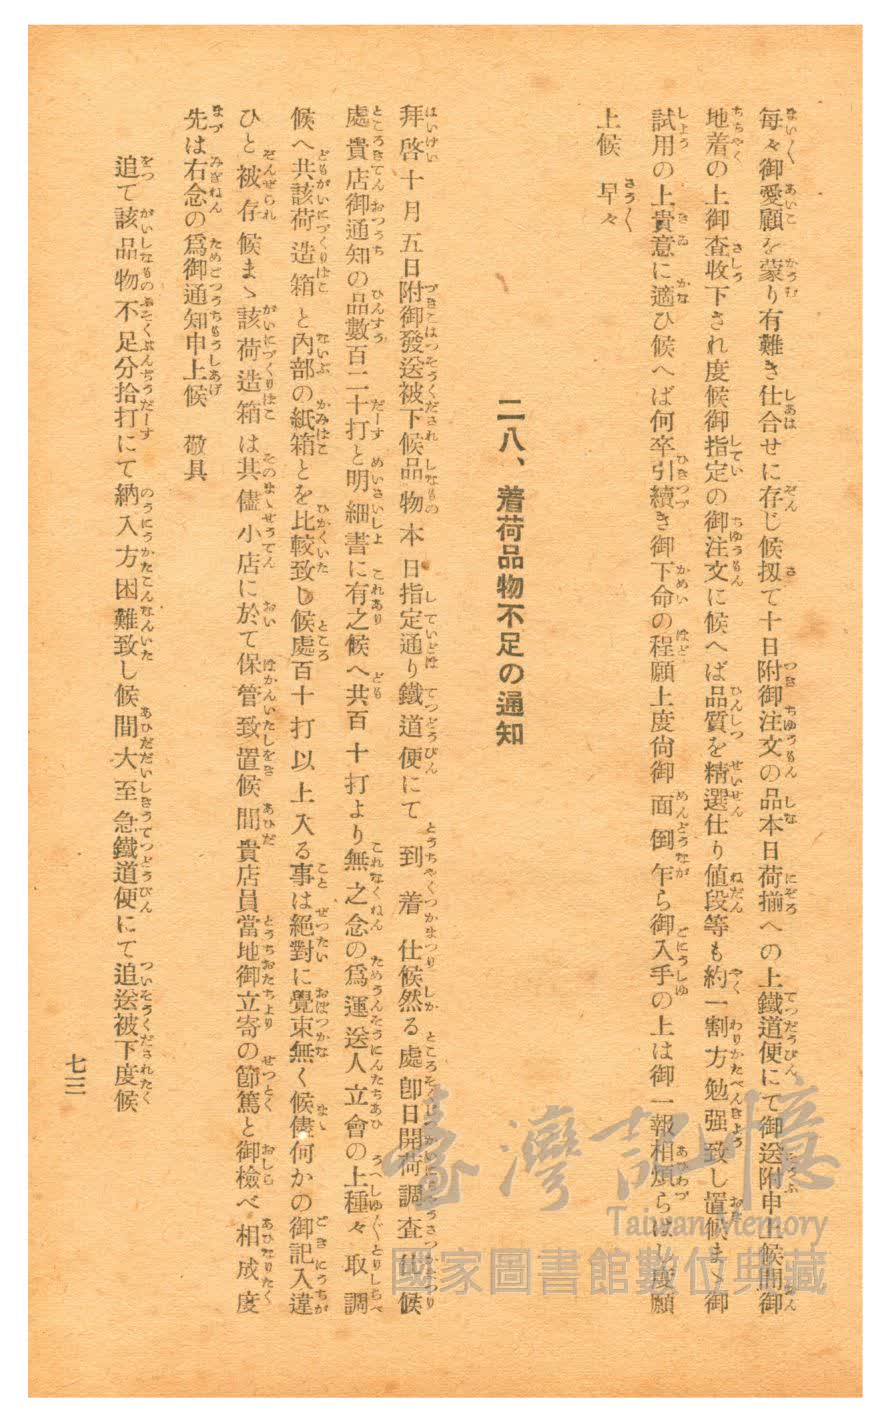 每々御愛顧を蒙り有難き仕合せに存じ候扨て十日附御注文の品本日荷揃への上鐵道便にて御送附申上候間御
地着の上御査收下され度候御指定の御注文に候へば品質を精選仕り値段等も約一割方勉强致し置候まゝ御
試用の上貴意に適ひ候へば何卒引續き御下命の程願上度尙御面倒乍ら御入手の上は御一報相煩らはし度願
上候 早々
二八、着荷品物不足の通知
拜啓十月五日附御發送被下候品物本日指定通り鐵道便にて到着仕候然る處卽日開荷調査仕候
處貴店御通知の品數百二十打と明細書に有之候へ共百十打より無之念の爲運送人立會の上種々取調
候へ共該荷造箱と內部の紙箱とを比較致し候處百十打以上入る事は絕對に覺束無く候儘何かの御記入違
ひと被存候まゝ該荷造箱は其儘小店に於て保管致置候間貴店員當地御立寄の節篤と御檢べ相成度
先は右念の爲御通知申上候 敬具
追て該品物不足分拾打にて納入方困難致し候間大至急鐵道便にて追送被下度候
七三
臺灣記憶
Taiwan Memory
國家圖書館數位典藏